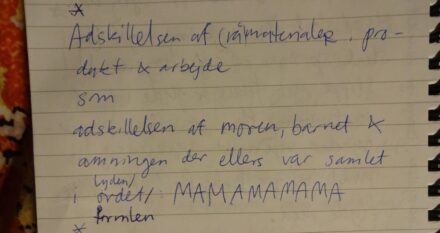 *
Adskillelsen af (råmaterialer, pro-
dukt & arbejde
som
adskillelsen af moren, barnet &
amningen der ellers var samlet
lyden/
i ordet/ MAMAMAMAMA
formlen
*